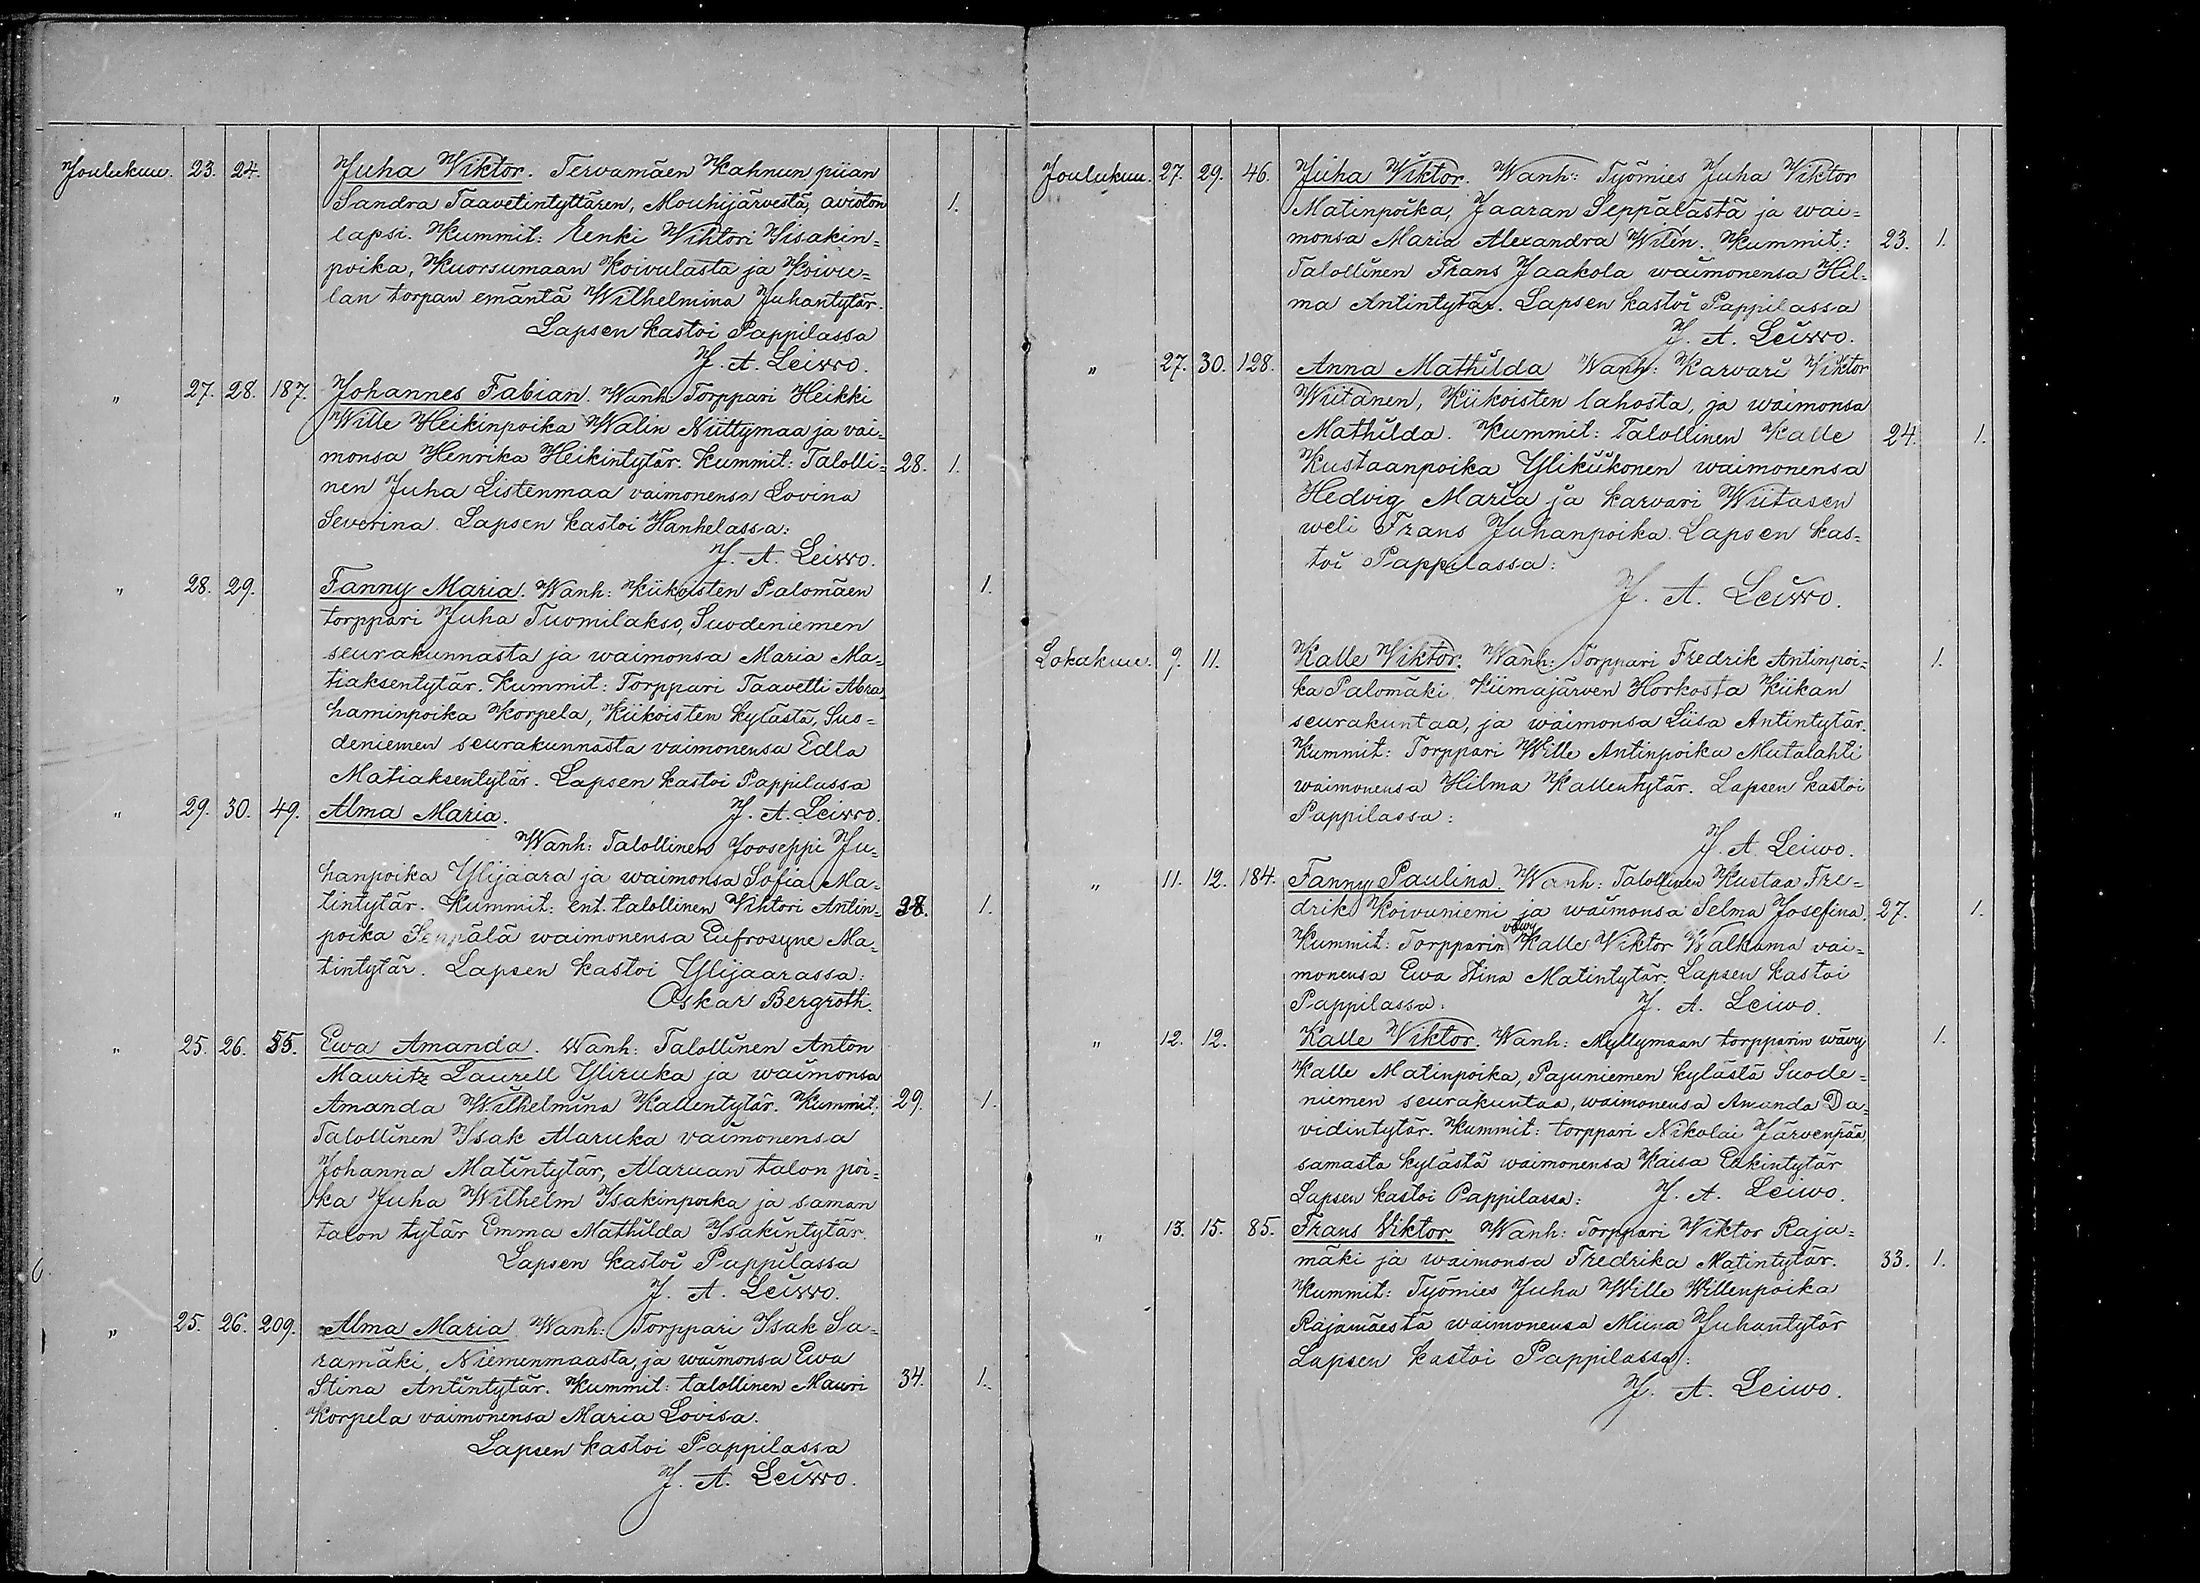 Joulukuu. 23. 24. Juha Wiktor. Tervamäen Kahnun piian
Sandra Taavetintyttären, Mouhijärvestä, avioton 1.
lapsi. Kummit: Renki Wihtori Iisakin-
poika, Kuorsumaan Koivulasta ja Koivu-
lan torpan emäntä Wilhelmina Juhantytär.
Lapsen kastoi Pappilassa
J. A. Leivvo.
" 27. 28. 187. Johannes Fabian. Wanh. Torppari Heikki
Wille Heikinpoika Walin Niittymaa ja vai-
monsa Henrika Heikintytär. Kummit: Talolli- 28. 1.
nen Juha Listenmaa vaimonensa Lovina
Severina. Lapsen kastoi Hanhelassa:
J. A. Leivvo.
" 28. 29. Fanny Maria. Wanh: Kiikoisten Palomäen 1.
torppari Juha Tuomilakso, Suodeniemen
seurakunnasta ja waimonsa Maria Ma-
tiaksentytär. Kummit: Torppari Taavetti Abra
haminpoika Korpela, Kiikoisten kylästä, Suo-
deniemen seurakunnasta vaimonensa Edla
Matiaksentytär. Lapsen kastoi Pappilassa
" 29. 30. 49. Alma Maria. J. A. Leivvo.
Wanh: Talollinen Jooseppi Ju-
hanpoika Ylijaara ja waimonsa Sofia Ma-
tintytär. Kummit: ent. talollinen Vihtori Antin- 38. 1.
poika Seppälä waimonensa Eufrosyne Ma-
tintytär. Lapsen kastoi Ylijaarassa:
Oskar Bergroth.
" 25. 26. 55. Ewa Amanda. Wanh: Talollinen Anton
Mauritz Laurell Yliruka ja waimonsa
Amanda Wilhelmina Kallentytär. Kummit: 29. 1.
Talollinen Isak Alaruka vaimonensa
Johanna Matintytär, Alaruan talon poi-
ka Juha Wilhelm Isakinpoika ja saman
talon tytär Emma Mathilda Isakintytär.
Lapsen kastoi Pappilassa
J. A. Leivvo.
" 25. 26. 209. Alma Maria Wanh: Torppari Isak Sa-
ramäki, Niemenmaasta, ja waimonsa Ewa
Stina Antintytär. Kummit: talollinen Mauri 34. 1.
Korpela vaimonensa Maria Lovisa.
Lapsen kastoi Pappilassa
J. A. Leivvo.
Joulukuu. 27. 29. 46. Juha Viktor. Wanh: Työmies Juha Viktor
Matinpoika, Jaaran Seppälästä ja wai-
monsa Maria Alexandra Wilén. Kummit: 23. 1.
Talollinen Frans Jaakola waimonensa Hil-
ma Antintytär. Lapsen kastoi Pappilassa
J. A. Leivvo.
" 27. 30. 128. Anna Mathilda Wanh: Karvari Viktor
Wiitanen, Kiikoisten lahosta, ja waimonsa
Mathilda. Kummit: Talollinen Kalle 24. 1.
Kustaanpoika Ylikiikonen waimonensa
Hedvig Maria ja karvari Wiitasen
weli Frans Juhanpoika. Lapsen kas-
toi Pappilassa:
J. A. Leivvo.
Lokakuu. 9. 11. Kalle Wiktor. Wanh: Torppari Fredrik Antinpoi- 1.
ka Palomäki, Kiimajärven Horkosta Kiikan
seurakuntaa, ja waimonsa Liisa Antintytär.
Kummit: Torppari Wille Antinpoika Mutalahti
waimonensa Hilma Kallentytär. Lapsen kastoi
Pappilassa:
J. A. Leiwo.
" 11. 12. 184. Fanny Paulina. Wanh: Talollinen Kustaa Fre-
drik Koivuniemi ja waimonsa Selma Josefina. 27. 1.
Kummit: Torpparin vävy Kalle Viktor Walkama vai-
monensa Ewa Stina Matintytär. Lapsen kastoi
Pappilassa. J. A. Leiwo.
" 12. 12. Kalle Viktor. Wanh: Myllymaan torpparin wävy 1.
Kalle Matinpoika, Pajuniemen kylästä Suode-
niemen seurakuntaa, waimonensa Amanda Da-
vidintytär. Kummit: torppari Nikolai Järvenpää,
samasta kylästä waimonensa Kaisa Erkintytär
Lapsen kastoi Pappilassa: J. A. Leiwo.
" 13. 15. 85. Frans Viktor Wanh: Torppari Viktor Raja-
mäki ja waimonsa Fredrika Matintytär. 33. 1.
Kummit: Työmies Juha Wille Willenpoika
Rajamäestä waimonensa Miina Juhantytär
Lapsen kastoi Pappilassa:
J. A. Leiwo.